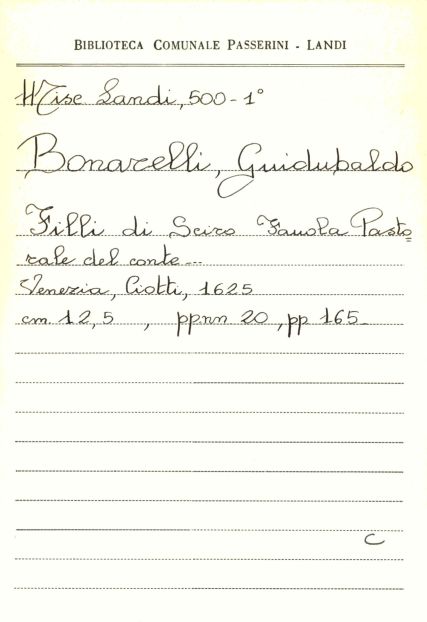 BIBLIOTECA COMUNALE PASSERINI - LANDI
Misc Landi, 500 - 1°
Bonarelli, Guidubaldo
Filli di Sciro Fauola Pasto=
rale del conte...
Venezia, Ciotti, 1625
cm. 12,5 , ppnn 20, pp 165_
C